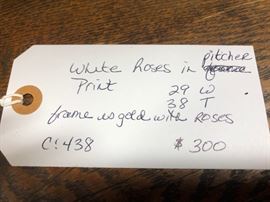 White Roses in pitcher
Print 29 W
38 T
frame is gold with Roses
C! 438 $300